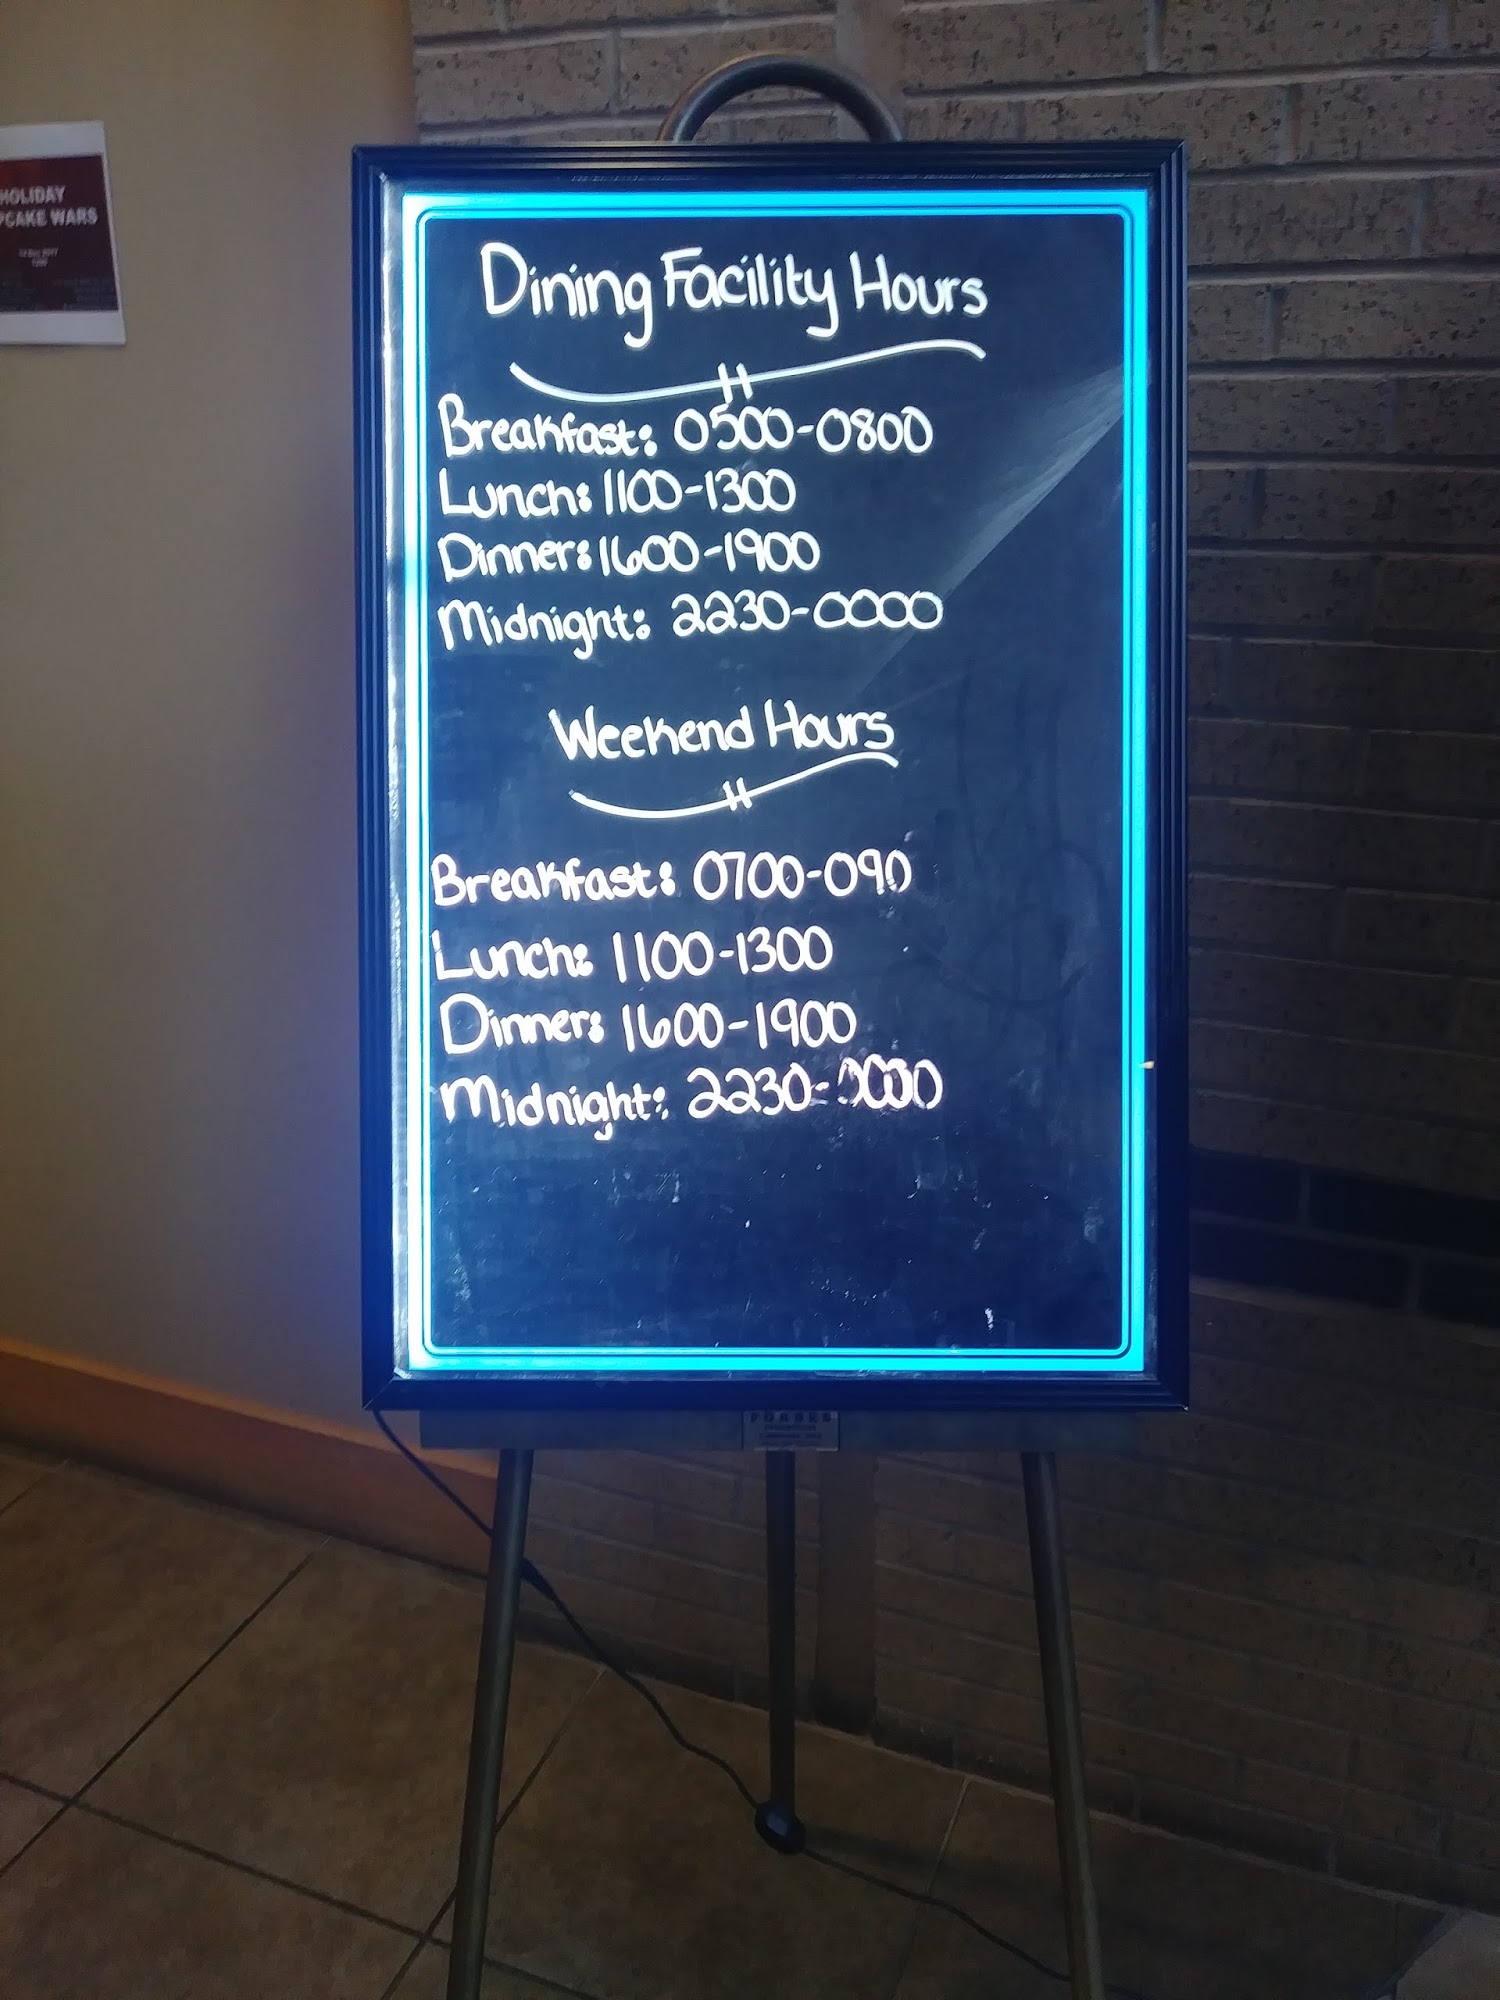 HOLIDAY
CAKE WARS
Dining Facility Hours
Breakfast: 0500-0800
Lunch: 1100-1300
Dinner: 1600-1900
Midnight: 2230-0000
Weekend Hours
Breakfast: 0700-090
Lunch: 1100-1300
Dinner: 1600-1900
Midnight: 2230-0030